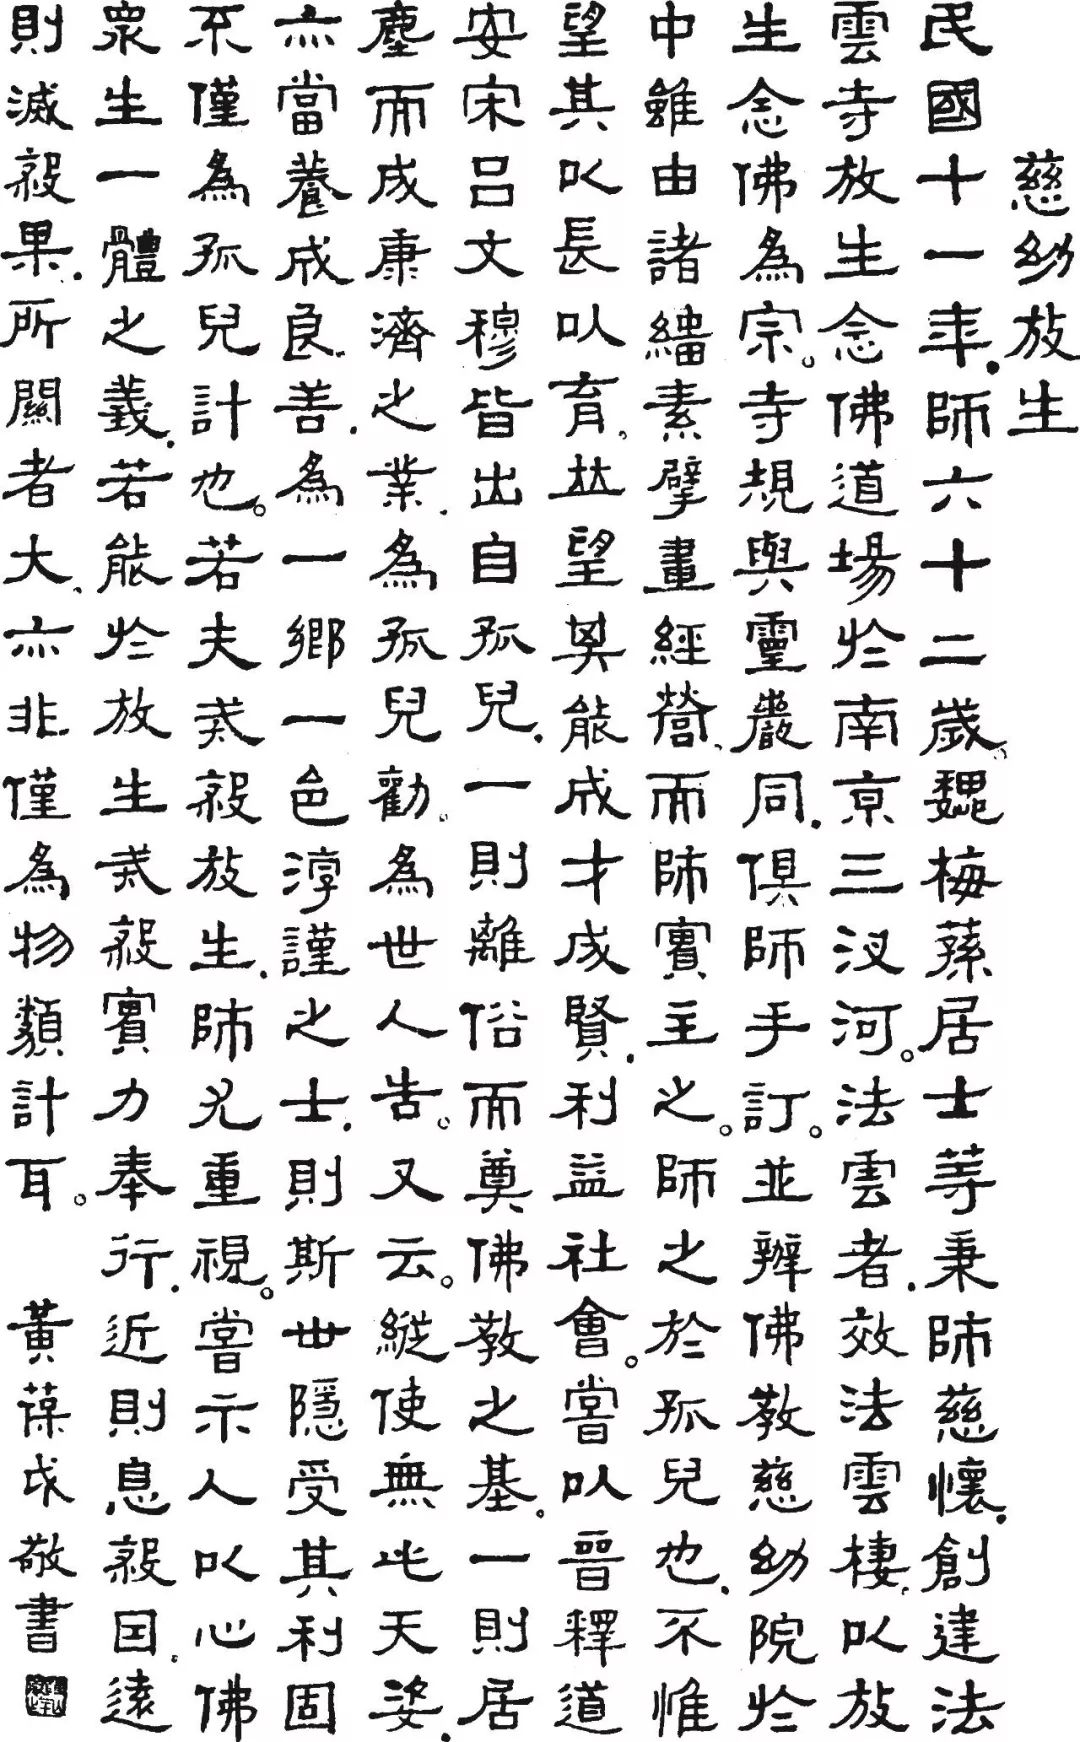 慈幼放生
民國十一年.師六十二歲、魏梅蓀居士等秉師慈懷.創建法
雲寺放生念佛道場於南京三汊河。法雲者.效法雲棲.以放
生念佛為宗。寺規與靈巖同.俱師手訂。並辦佛教慈幼院於
中雖由諸緇素擘畫經營、而師實主之。師之於孤兒也.不惟
望其以長以育。並望其能成才成賢.利益社會。嘗以晉釋道
安宋呂文穆皆出自孤兒.一則離俗而奠佛教之基。一則居
塵而成康濟之業.為孤兒勸。為世人告。又云。縱使無此天姿.
亦當養成良.善.為一鄉一邑淳謹之士.則斯世隱受其利固
不僅為孤兒計也。若夫戒殺放生.師尤重視。嘗示人以心佛
眾生一體之義.若能於放生戒殺實力奉行.近則息殺因.遠
則滅殺果.所關者大、亦非僅為物類計耳。 黃葆戉敬書